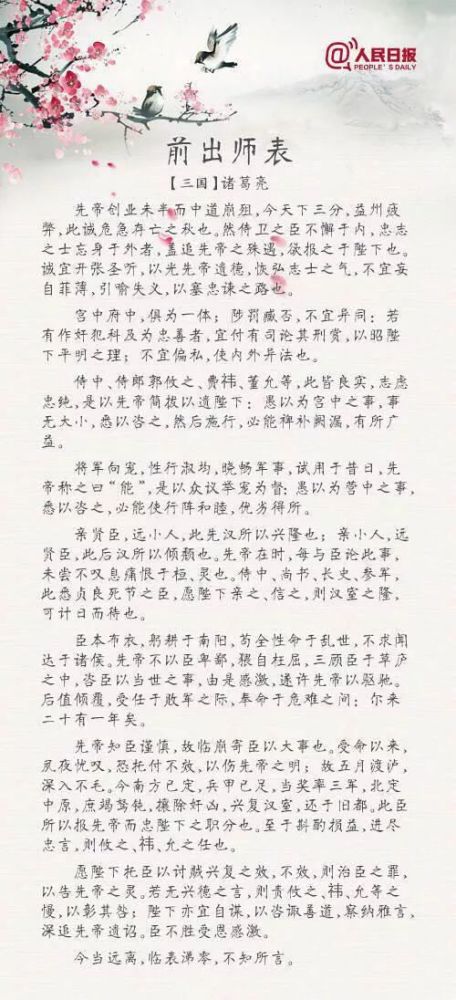 @人民日报
PEOPLE'S DAILY
前出师表
【三国】诸葛亮
先帝创业未半而中道崩殂,今天下三分,益州疲
弊,此诚危急存亡之秋也。然侍卫之臣不懈于内,忠志
之士忘身于外者,盖追先帝之殊遇,欲报之于陛下也。
诚宜开张圣听,以光先帝遗德,恢弘志士之气,不宜妄
自菲薄,引喻失义,以塞忠谏之路也。
宫中府中,俱为一体;陟罚臧否,不宜异同:若
有作奸犯科及为忠善者,宜付有司论其刑赏,以昭陛
下平明之理;不宜偏私,使内外异法也。
侍中、侍郎郭攸之、费祎、董允等,此皆良实,志虑
忠纯,是以先帝简拔以遗陛下:愚以为宫中之事,事
无大小,悉以咨之,然后施行,必能裨补阙漏,有所广
益。
将军向宠,性行淑均,晓畅军事,试用于昔日,先
帝称之曰“能”,是以众议举宠为督:愚以为营中之事,
悉以咨之,必能使行阵和睦,优劣得所。
亲贤臣,远小人,此先汉所以兴隆也;亲小人,远
贤臣,此后汉所以倾颓也。先帝在时,每与臣论此事,
未尝不叹息痛恨于桓、灵也。侍中、尚书、长史、参军,
此悉贞良死节之臣,愿陛下亲之、信之,则汉室之隆,
可计日而待也。
臣本布衣,躬耕于南阳,苟全性命于乱世,不求闻
达于诸侯。先帝不以臣卑鄙,猥自枉屈,三顾臣于草庐
之中,咨臣以当世之事,由是感激,遂许先帝以驱驰。
后值倾覆,受任于败军之际,奉命于危难之间:尔来
二十有一年矣。
先帝知臣谨慎,故临崩寄臣以大事也。受命以来,
夙夜忧叹,恐托付不效,以伤先帝之明;故五月渡泸,
深入不毛。今南方已定,兵甲已足,当奖率三军,北定
中原,庶竭驽钝,攘除奸凶,兴复汉室,还于旧都。此臣
所以报先帝而忠陛下之职分也。至于斟酌损益,进尽
忠言,则攸之、祎、允之任也。
愿陛下托臣以讨贼兴复之效,不效,则治臣之罪,
以告先帝之灵。若无兴德之言,则责攸之、祎、允等之
慢,以彰其咎;陛下亦宜自谋,以咨诹善道,察纳雅言,
深追先帝遗诏。臣不胜受恩感激。
今当远离,临表涕零,不知所言。